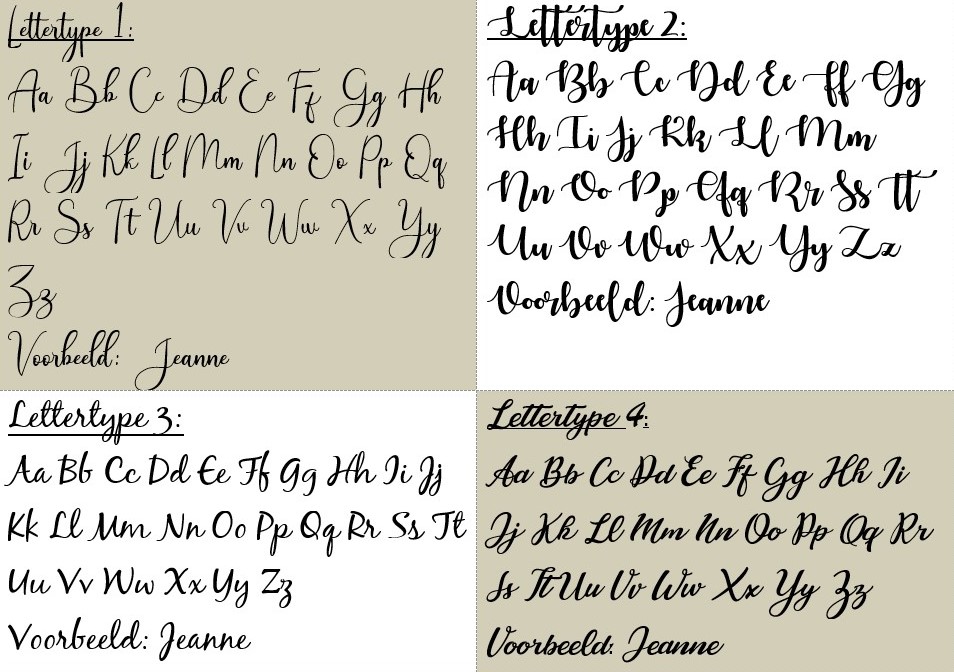 Lettertype 1:
Aa Bb Cc Dd Ee Ff Gg Hh
Ii Jj Kk Ll Mm Nn Oo Pp Qq
Rr Ss Tt Uu Vv Ww Xx Yy
Zz
Voorbeeld: Jeanne
Lettertype 2:
Aa Bb Cc Dd Ee Ff Gg
Hh Ii Jj Kk Ll Mm
Nn Oo Pp Qq Rr Ss Tt
Uu Vv Ww Xx Yy Zz
Voorbeeld: Jeanne
Lettertype 3:
Aa Bb Cc Dd Ee Ff Gg Hh Ii Jj
Kk Ll Mm Nn Oo Pp Qq Rr Ss Tt
Uu Vv Ww Xx Yy Zz
Voorbeeld: Jeanne
Lettertype 4:
Aa Bb Cc Dd Ee Ff Gg Hh Ii
Jj Kk Ll Mm Nn Oo Pp Qq Rr
Ss Tt Uu Vv Ww Xx Yy Zz
Voorbeeld: Jeanne